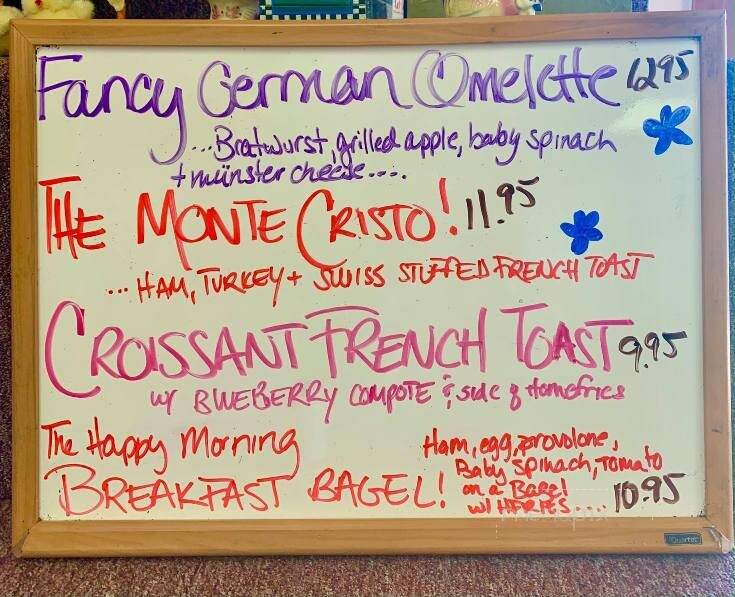 Fancy German Omelette 12.95
...Bratwurst, grilled apple, baby spinach
+ münster cheese....
THE MONTE CRISTO! 11.95
...HAM, TURKEY + SWISS STUFFED FRENCH TOAST
CROISSANT FRENCH TOAST 9.95
w/ BLUEBERRY COMPOTE & side of Homefries
The Happy Morning
BREAKFAST BAGEL!
Ham, egg, provolone,
Baby Spinach, Tomato
on a Bagel
w/ HFRIES.... 10.95
Quartet